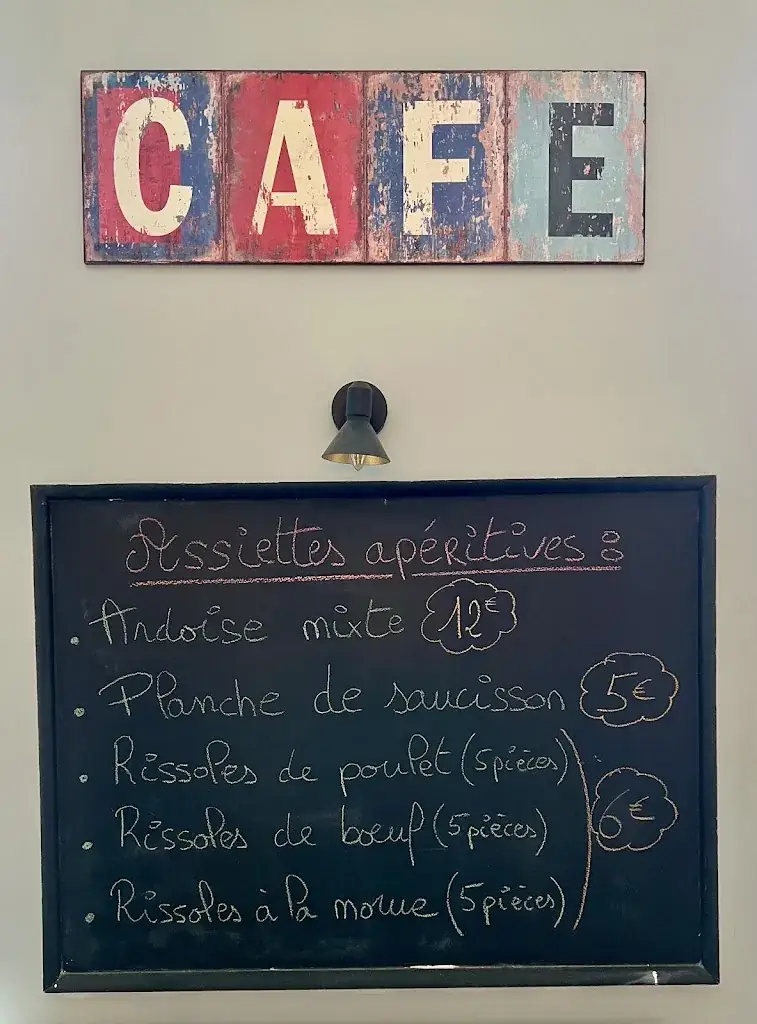 CAFE
Assiettes apéritives :
. Ardoise mixte 12€
. Planche de saucisson 5€
. Rissoles de poulet (5 pièces)
. Rissoles de bœuf (5 pièces) 6€
. Rissoles à la morue (5 pièces)